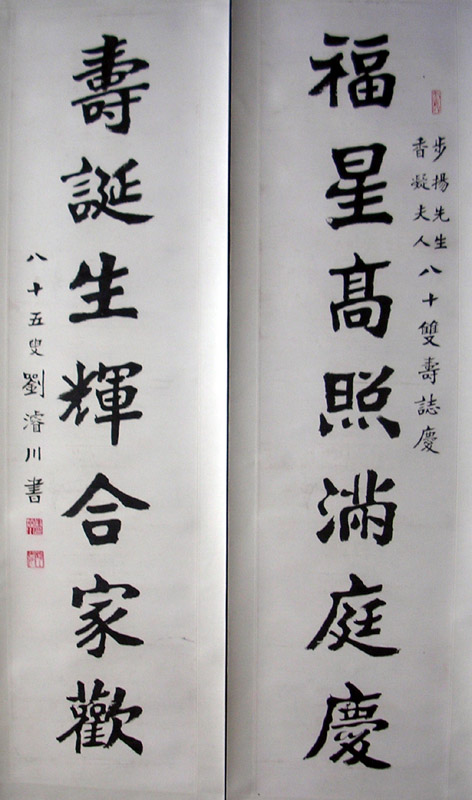 步揚先生
香凝夫人八十雙壽誌慶
福星高照滿庭慶
壽誕生輝合家歡
八十五叟劉濬川書